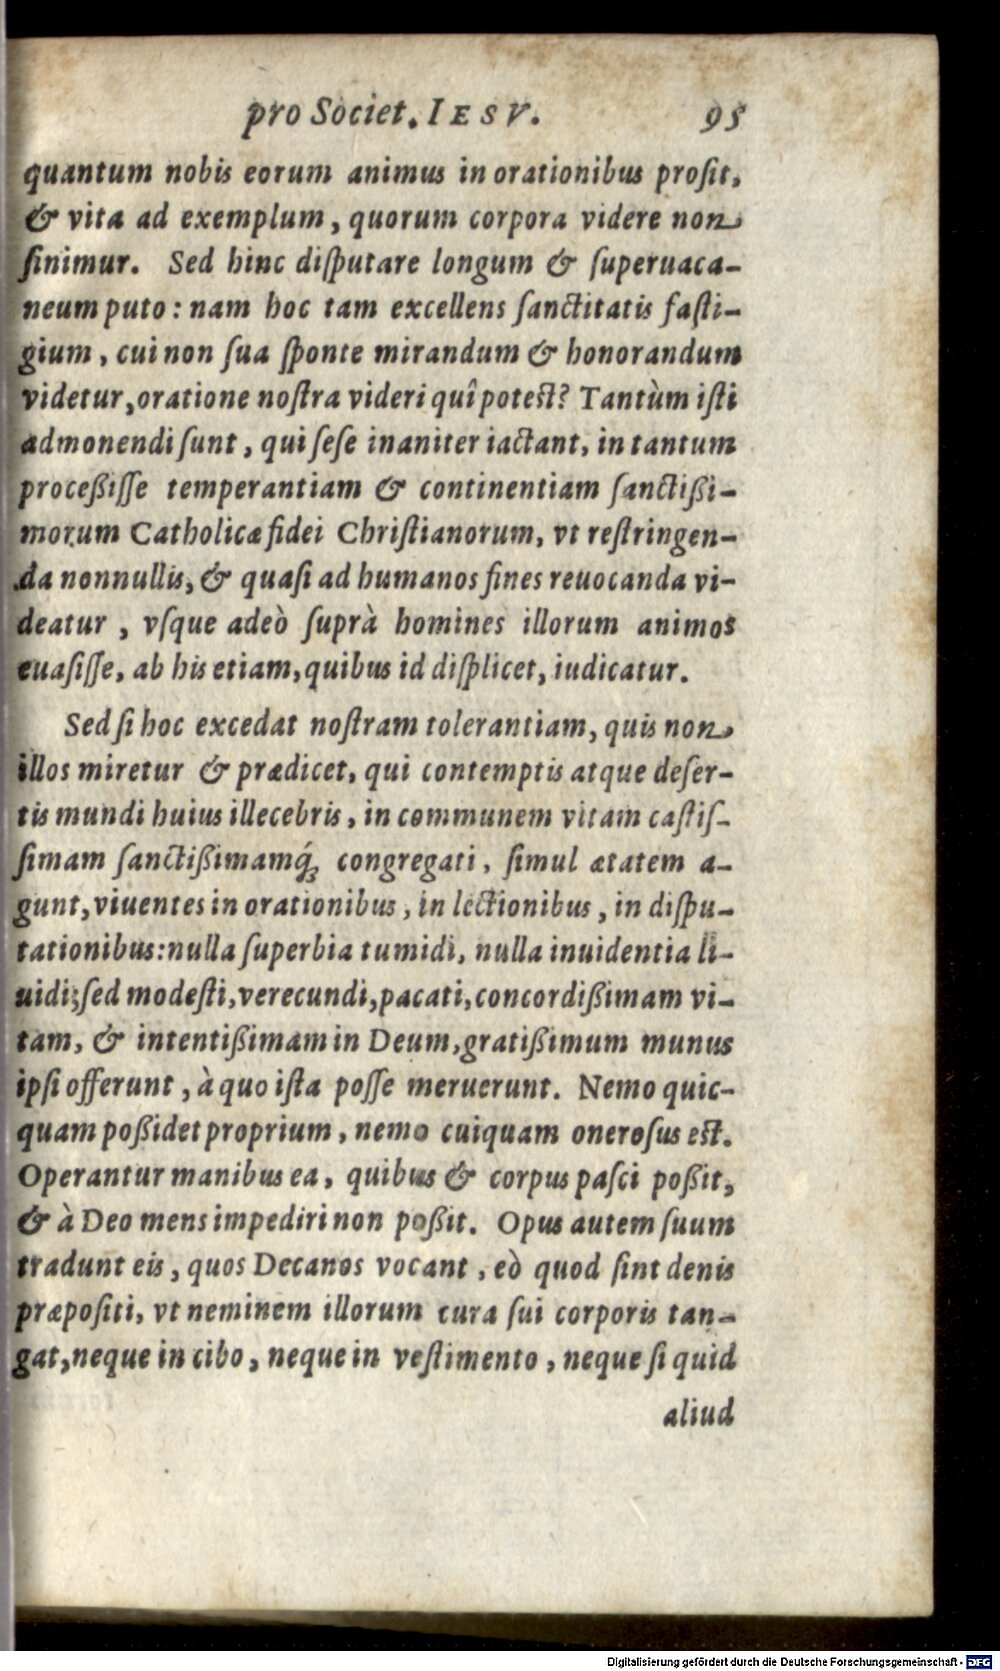 pro Societ. IESV. 95
quantum nobis eorum animus in orationibus proſit,
& vita ad exemplum, quorum corpora videre non
ſinimur. Sed hinc diſputare longum & ſuperuaca-
neum puto: nam hoc tam excellens ſanctitatis faſti-
gium, cui non ſua ſponte mirandum & honorandum
videtur, oratione noſtra videri quî potest? Tantùm iſti
admonendi ſunt, qui ſeſe inaniter iactant, in tantum
proceßiſſe temperantiam & continentiam ſanctißi-
morum Catholicæ fidei Chriſtianorum, vt reſtringen-
da nonnullis, & quaſi ad humanos fines reuocanda vi-
deatur, vſque adeò ſuprà homines illorum animos
euaſiſſe, ab his etiam, quibus id diſplicet, iudicatur.
Sed ſi hoc excedat noſtram tolerantiam, quis non
illos miretur & prædicet, qui contemptis atque deſer-
tis mundi huius illecebris, in communem vitam caſtiſ-
ſimam ſanctißimamq́; congregati, ſimul ætatem a-
gunt, viuentes in orationibus, in lectionibus, in diſpu-
tationibus: nulla ſuperbia tumidi, nulla inuidentia li-
uidi; ſed modeſti, verecundi, pacati, concordißimam vi-
tam, & intentißimam in Deum, gratißimum munus
ipſi offerunt, à quo iſta poſſe meruerunt. Nemo quic-
quam poßidet proprium, nemo cuiquam oneroſus est.
Operantur manibus ea, quibus & corpus paſci poßit,
& à Deo mens impediri non poßit. Opus autem ſuum
tradunt eis, quos Decanos vocant, eò quod ſint denis
præpoſiti, vt neminem illorum cura ſui corporis tan-
gat, neque in cibo, neque in veſtimento, neque ſi quid
aliud
Digitalisierung gefördert durch die Deutsche Forschungsgemeinschaft - DFG